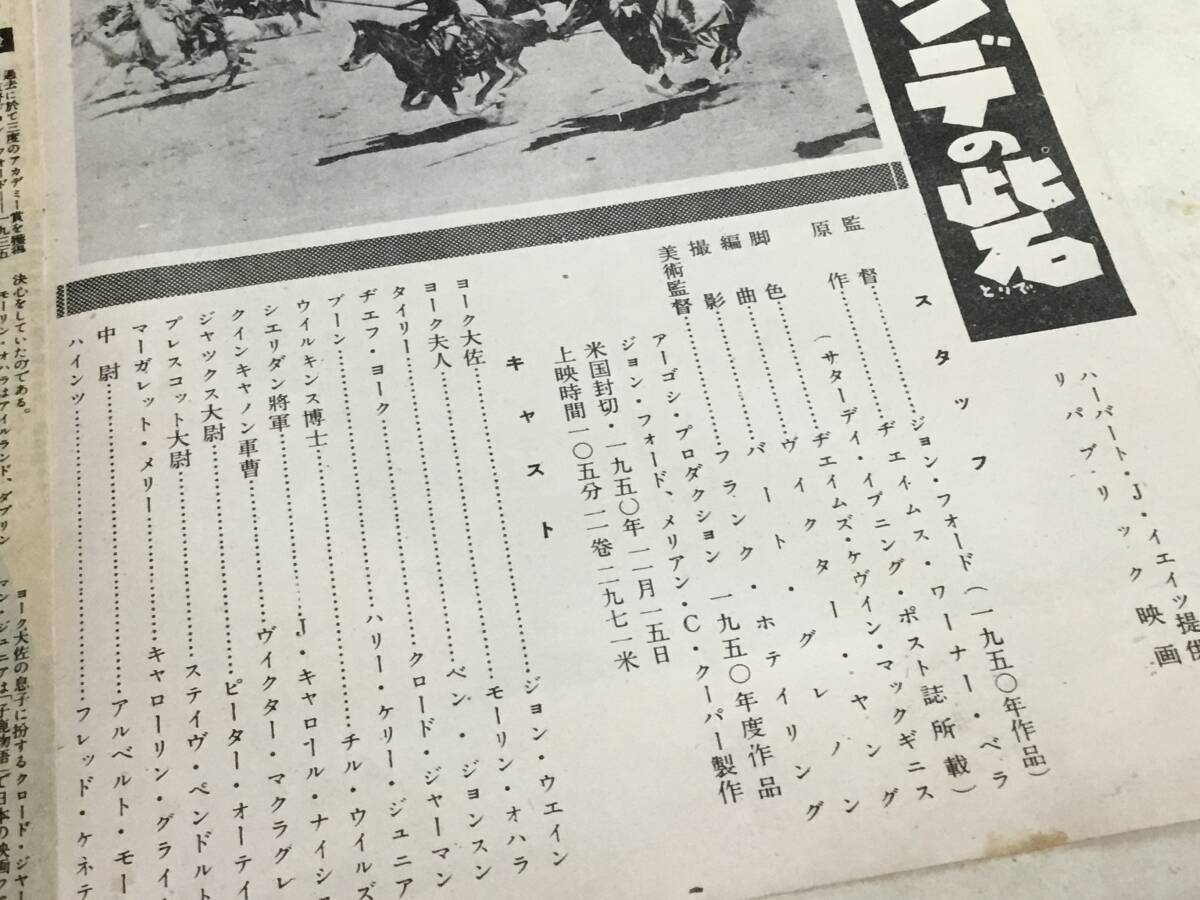 ンデの砦
とりで
ハーバート・J・イエイツ提供
リパブリック映画
スタッフ
監督……ジョン・フォード(一九五〇年作品)
原作……ヂエイムス・ワーナー・ベラ
(サターデイ・イブニング・ポスト誌所載)
脚色……ヂエイムズ・ケヴイン・マックギニス
編曲……ヴイクター・ヤング
撮影……バート・グレノン
美術監督……フランク・ホテイリング
アーゴシ・プロダクション 一九五〇年度作品
ジョン・フォード、メリアン・C・クーパー製作
米国封切・一九五〇年一一月一五日
上映時間一〇五分一一巻二九七一米
キャスト
ヨーク大佐……ジョン・ウエイン
ヨーク夫人……モーリン・オハラ
タイリー……ベン・ジョンスン
ヂエフ・ヨーク……クロード・ジャーマン
ブーン……ハリー・ケリー・ジュニア
ウイルキンス博士……チル・ウイルズ
シエリダン將軍……J・キャロール・ナイシ
クインキャノン軍曹……ヴイクター・マクラグレ
ジャックス大尉……ピーター・オーテイ
プレスコット大尉……ステイヴ・ペンドルト
マーガレット・メリー……キャローリン・グライ
中尉……アルベルト・モー
ハインツ……フレッド・ケネテ
過去に於て三度のアカデミー賞を獲得
決心をしていたのである。
モーリン・オハラはアイルランド、ダブリン
ヨーク大佐の息子に扮するクロード・ジャー
マン・ジュニアは「子鹿物語」で日本の映画フ